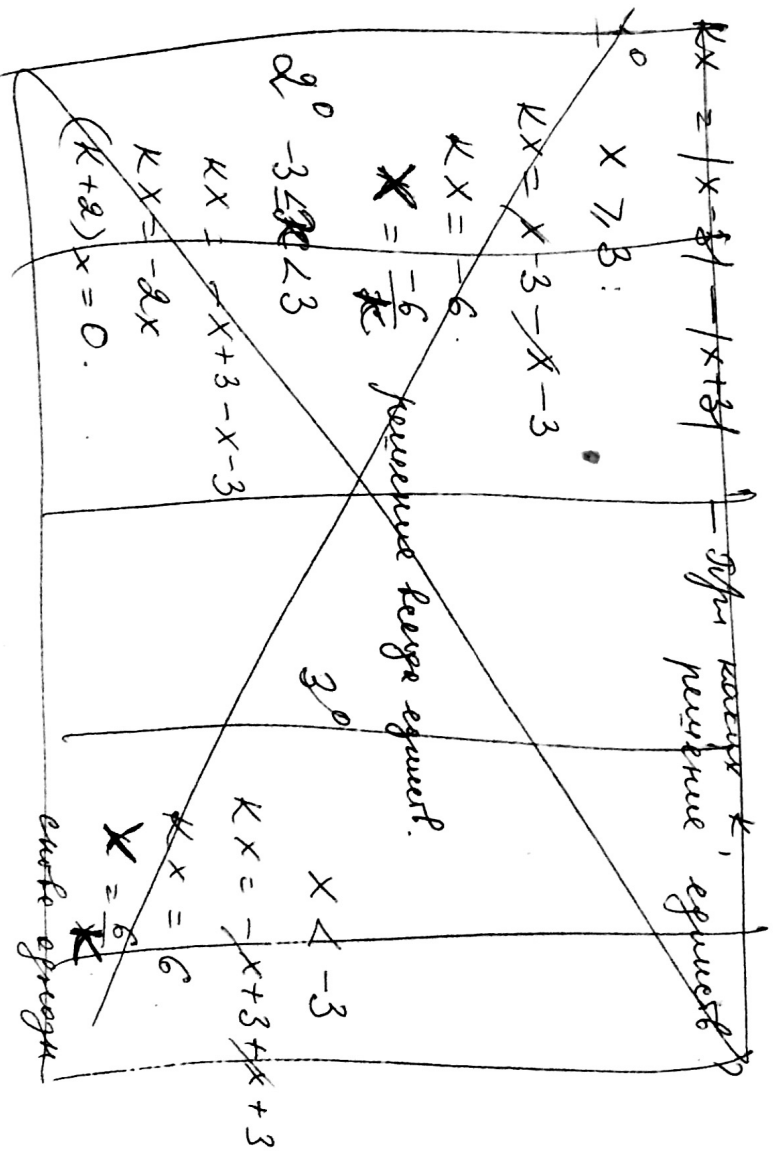 kx = |x-3| - |x+3| - При каких k,
решение единств
1°
x ⩾ 3:
kx = x-3-x-3
kx = -6.
x = -6/k решение всегда единств.
2° -3≤x<3
kx = -x+3-x-3
kx = -2x
(k+2)x = 0.
3°
x < -3
kx = -x+3+x+3
kx = 6
x = 6/k
снова